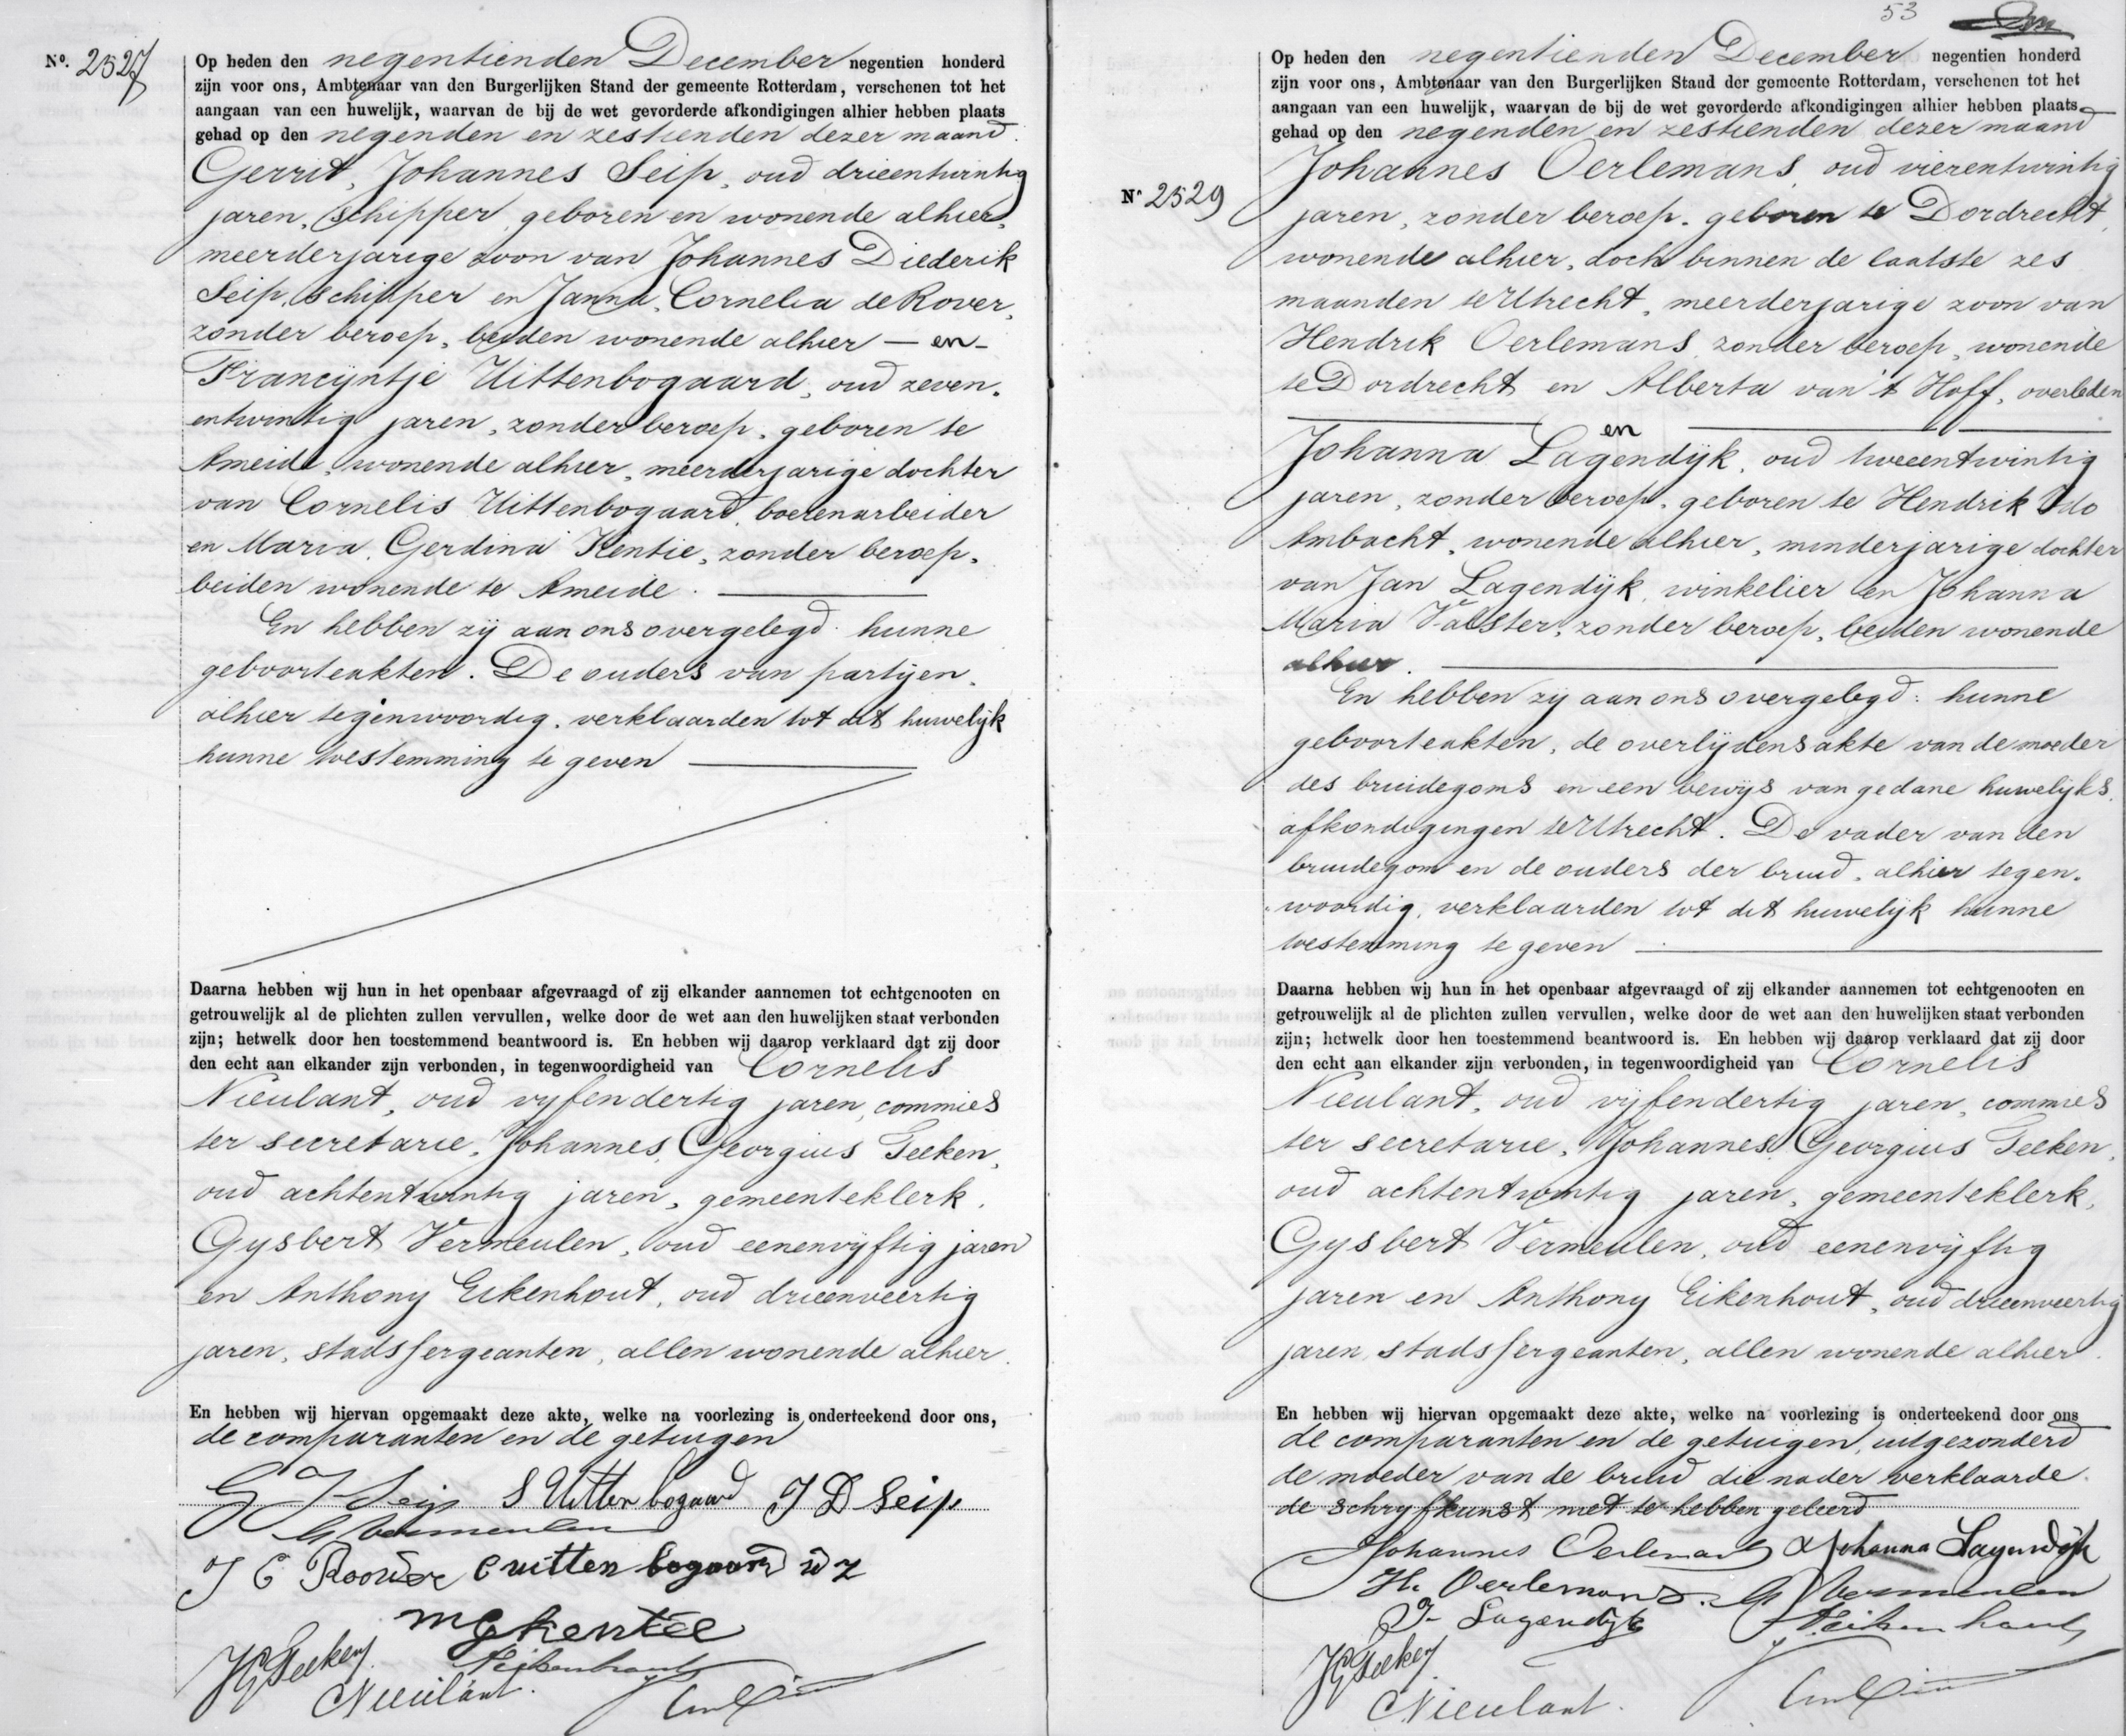 Nº. 2527
Op heden den negentienden December negentien honderd
zijn voor ons, Ambtenaar van den Burgerlijken Stand der gemeente Rotterdam, verschenen tot het
aangaan van een huwelijk, waarvan de bij de wet gevorderde afkondigingen alhier hebben plaats
gehad op den negenden en zestienden dezer maand.
Gerrit, Johannes Seip, oud drieentwintig
jaren, schipper, geboren en wonende alhier,
meerderjarige zoon van Johannes Diederik
Seip, schipper en Janna, Cornelia de Rover,
zonder beroep, beiden wonende alhier — en —
Francijntje Uittenbogaard, oud zeven-
entwintig jaren, zonder beroep, geboren te
Ameide, wonende alhier, meerderjarige dochter
van Cornelis Uittenbogaard, boerenarbeider
en Maria, Gerdina Kentie, zonder beroep,
beiden wonende te Ameide.
En hebben zij aan ons overgelegd: hunne
geboorteakten. De ouders van partijen,
alhier tegenwoordig, verklaarden tot dit huwelijk
hunne toestemming te geven
Daarna hebben wij hun in het openbaar afgevraagd of zij elkander aannemen tot echtgenooten en
getrouwelijk al de plichten zullen vervullen, welke door de wet aan den huwelijken staat verbonden
zijn; hetwelk door hen toestemmend beantwoord is. En hebben wij daarop verklaard dat zij door
den echt aan elkander zijn verbonden, in tegenwoordigheid van Cornelis
Nieulant, oud vijfendertig jaren, commies
ter secretarie, Johannes, Georgius Teeken,
oud achtentwintig jaren, gemeenteklerk,
Gysbert Vermeulen, oud eenenvijftig jaren
en Anthony Eikenhout, oud drieenveertig
jaren, stadssergeanten, allen wonende alhier.
En hebben wij hiervan opgemaakt deze akte, welke na voorlezing is onderteekend door ons,
de comparanten en de getuigen
G J Seip S Uittenbogaard J D Seip
G Vermeulen
J C Roover C uittenbogaard
M G Kentie
JG Teeken
A Eikenhout
Nieulant.
53
Op heden den negentienden December negentien honderd
zijn voor ons, Ambtenaar van den Burgerlijken Stand der gemeente Rotterdam, verschenen tot het
aangaan van een huwelijk, waarvan de bij de wet gevorderde afkondigingen alhier hebben plaats
gehad op den negenden en zestienden dezer maand
Nº 2529
Johannes Oerlemans, oud vierentwintig
jaren, zonder beroep, geboren te Dordrecht,
wonende alhier, doch binnen de laatste zes
maanden te Utrecht, meerderjarige zoon van
Hendrik Oerlemans, zonder beroep, wonende
te Dordrecht en Alberta van 't Hoff, overleden
en
Johanna Lagendijk, oud tweeentwintig
jaren, zonder beroep, geboren te Hendrik Ido
Ambacht, wonende alhier, minderjarige dochter
van Jan Lagendijk, winkelier en Johanna
Maria Valster, zonder beroep, beiden wonende
alhier.
En hebben zij aan ons overgelegd: hunne
geboorteakten, de overlijdensakte van de moeder
des bruidegoms en een bewijs van gedane huwelijks,
afkondigingen te Utrecht. De vader van den
bruidegom en de ouders der bruid, alhier tegen-
woordig, verklaarden tot dit huwelijk hunne
toestemming te geven
Daarna hebben wij hun in het openbaar afgevraagd of zij elkander aannemen tot echtgenooten en
getrouwelijk al de plichten zullen vervullen, welke door de wet aan den huwelijken staat verbonden
zijn; hetwelk door hen toestemmend beantwoord is. En hebben wij daarop verklaard dat zij door
den echt aan elkander zijn verbonden, in tegenwoordigheid van Cornelis
Nieulant, oud vijfendertig jaren, commies
ter secretarie, Johannes, Georgius Teeken,
oud achtentwintig jaren, gemeenteklerk,
Gysbert Vermeulen, oud eenenvijftig
jaren en Anthony Eikenhout, oud drieenveertig
jaren, stadssergeanten, allen wonende alhier.
En hebben wij hiervan opgemaakt deze akte, welke na voorlezing is onderteekend door ons
de comparanten en de getuigen, uitgezonderd
de moeder van de bruid die nader verklaarde
de schrijfkunst niet te hebben geleerd
Johannes Oerlemans Johanna Lagendijk
H. Oerlemans. G Vermeulen
J. Lagendijk A Eikenhout
JG Teeken
Nieulant.